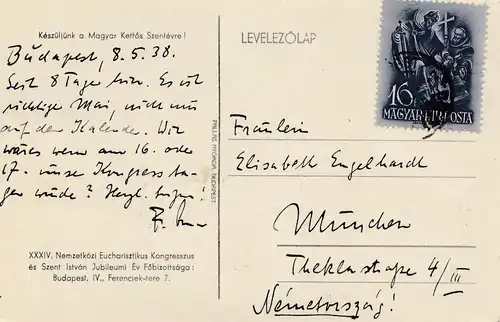 Készüljünk a Magyar Kettős Szentévre!
Budapest, 8.5.38.
Seit 8 Tage hier. Es ist
richtige Mai, nicht nur
auf der Kalender. Wir
wäres wenn am 16. oder
17. unser Kongress ta-
gen würde? Herzl.
XXXIV. Nemzetközi Eucharisztikus Kongresszus
és Szent István Jubileumi Év Főbizottsága:
Budapest, IV., Ferenciek-tere 7.
PALLAS NYOMDA, BUDAPEST
LEVELEZŐLAP
16
MAGYAR POSTA
Fräulein
Elisabeth Engelhardt
München
Theklastraße 4/III
Németország!